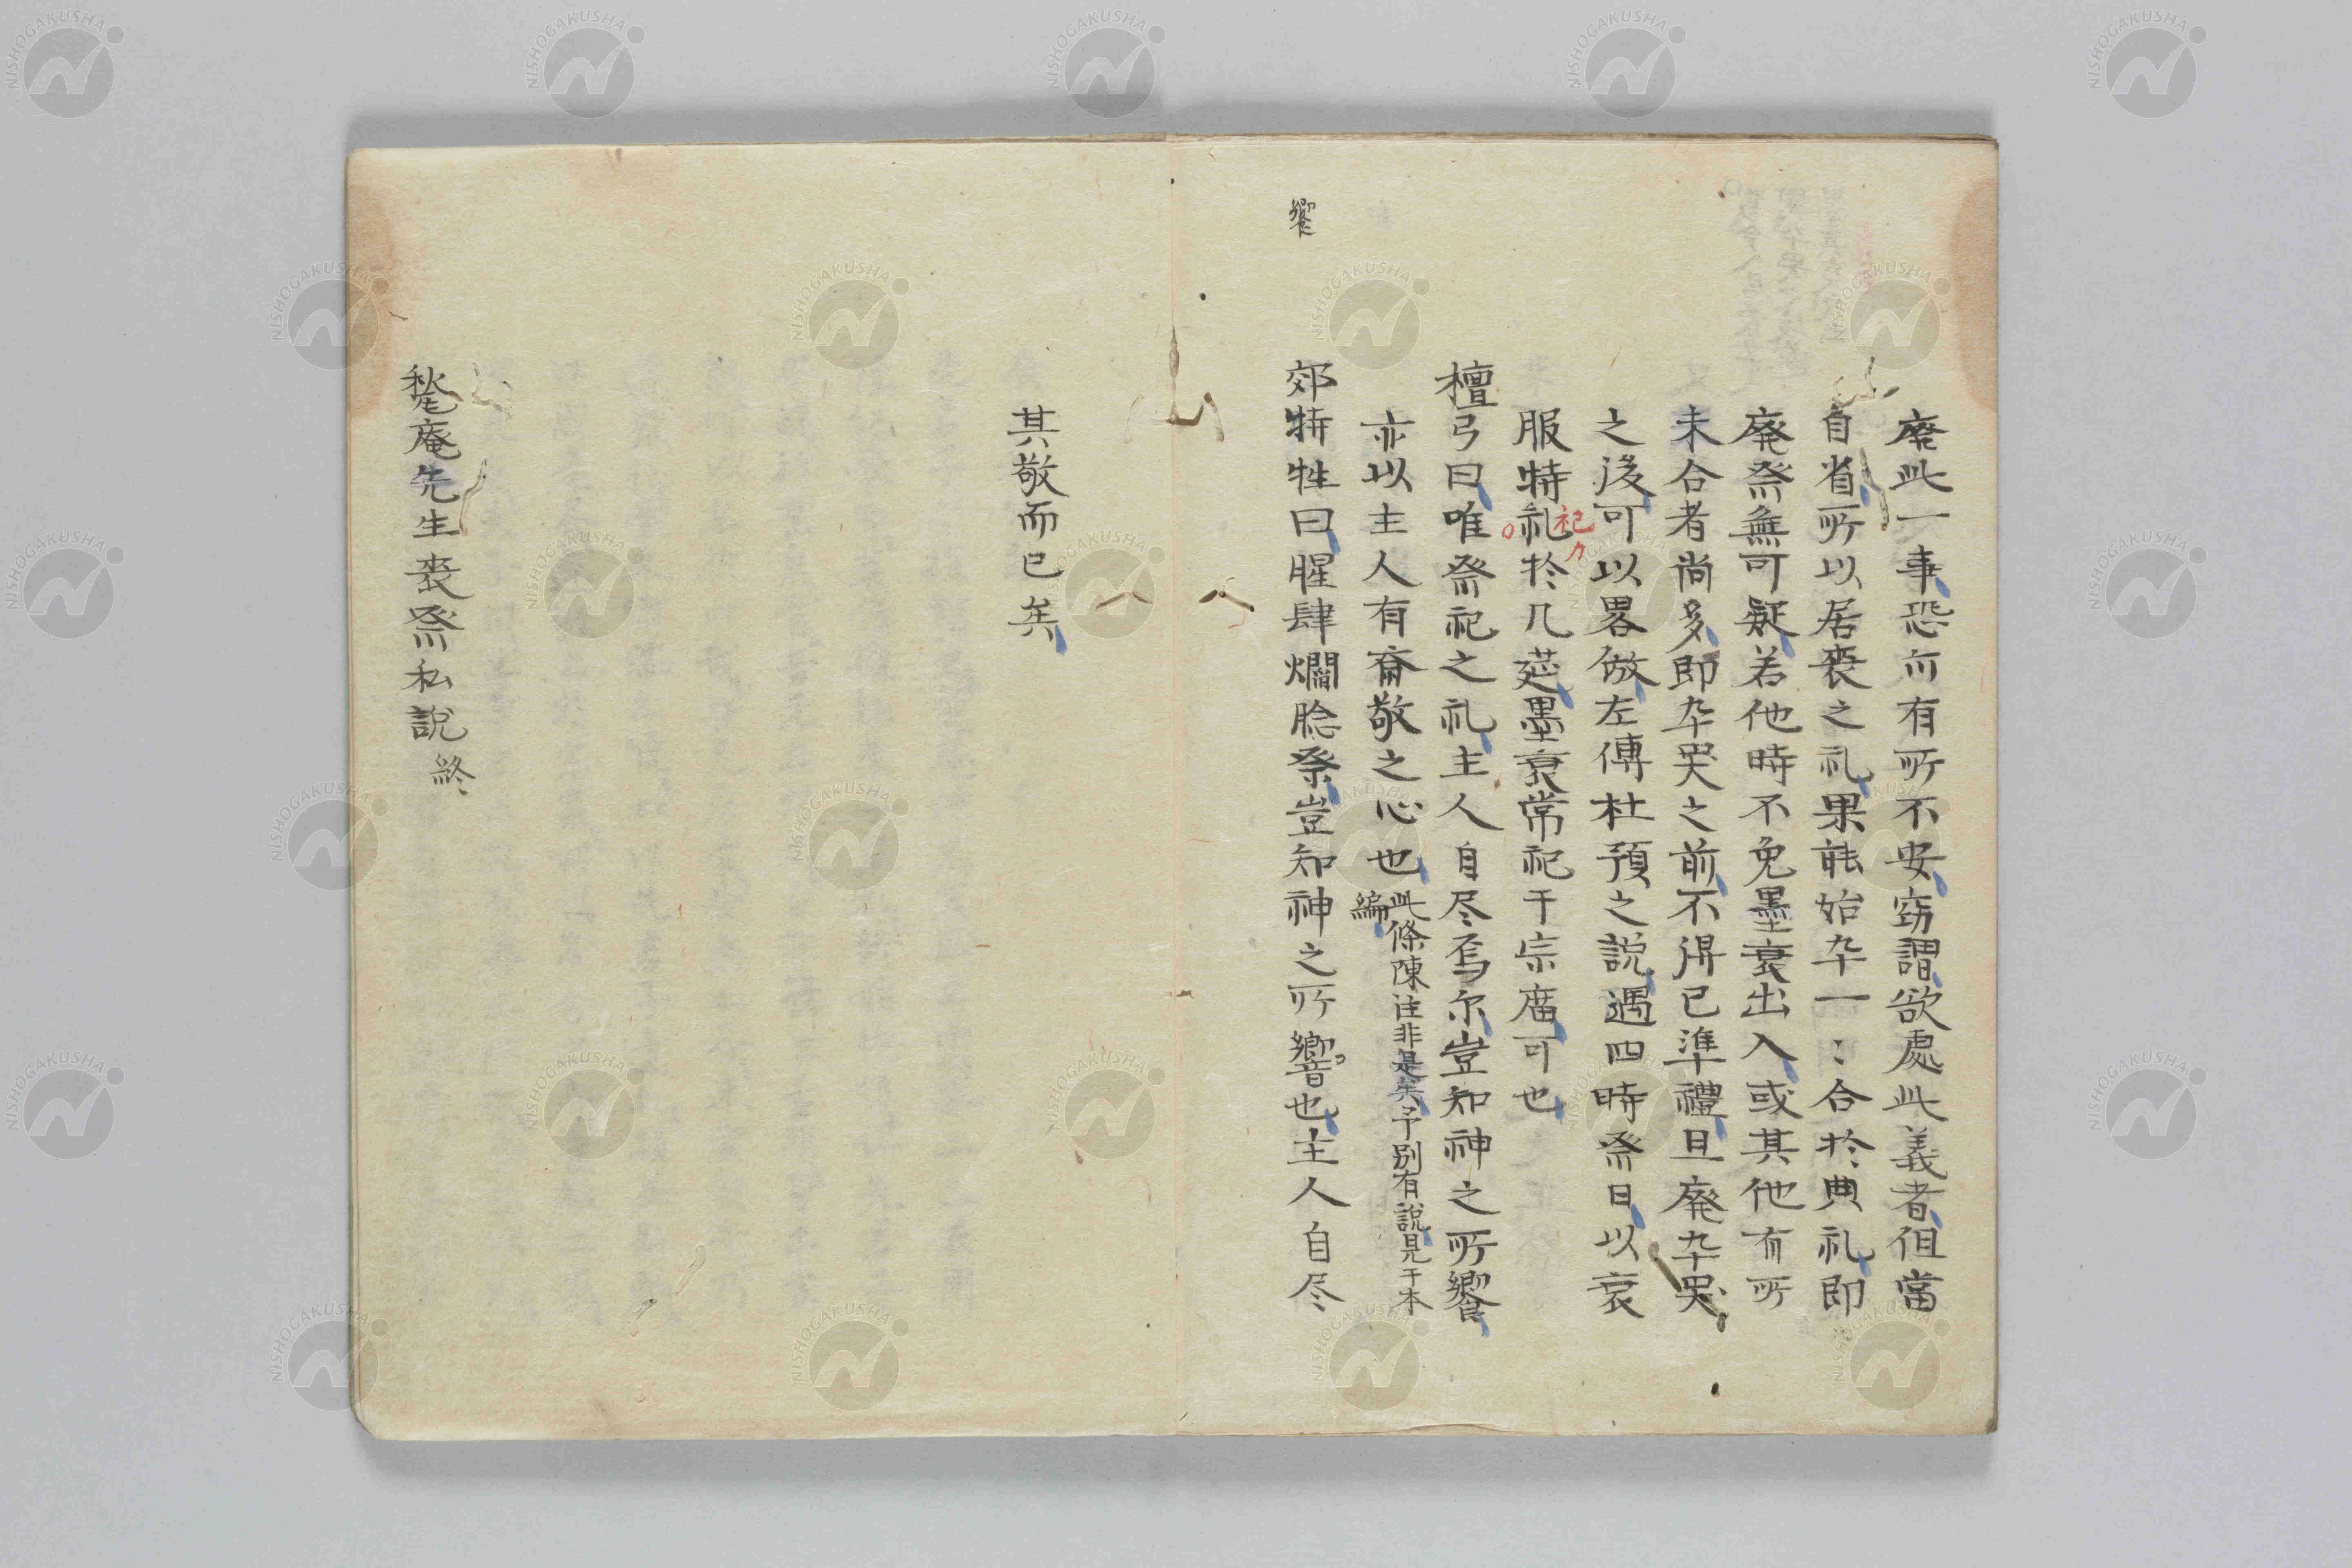 廃此一事恐亦有所不安窃謂欲處此義者但當
自省所以居喪之礼果能始卒一〻合於典礼即
廃祭無可疑若他時不免墨衰出入或其他有所
未合者尚多即卒哭之前不得已準禮且廃卒哭
之後可以畧倣左傳杜預之説遇四時祭日以衰
服特礼於几莚墨衰常祀于宗庿可也
祀カ
檀弓曰唯祭祀之礼主人自尽焉尔豈知神之所饗
亦以主人有齊敬之心也此條陳注非是矣予別有説見于本
編
饗
郊特牲曰腥肆爓腍祭豈知神之所響也主人自尽
其敬而已矣
憖庵先生喪祭私説終
NISHOGAKUSHA